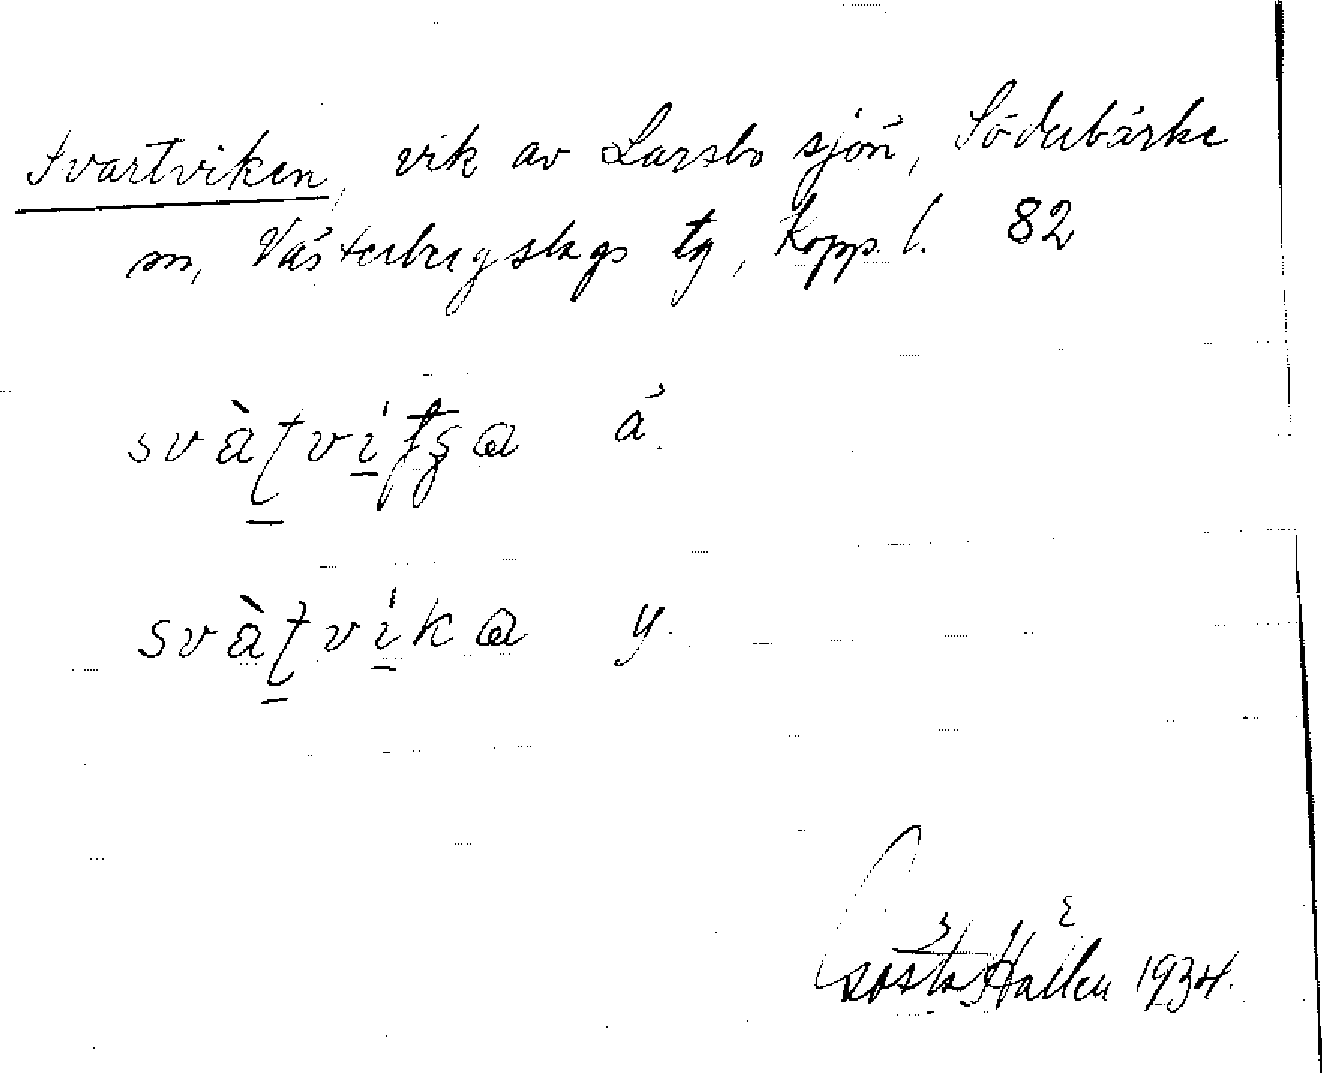 Svartviken, vik av Larsbo sjön, Söderbärke
sn, Västerbergslags tg, Kopp. l. 82
svàʈvi̲ʈʂa ä.
svàʈvi̲ka y.
Gösta Hallén 1934.